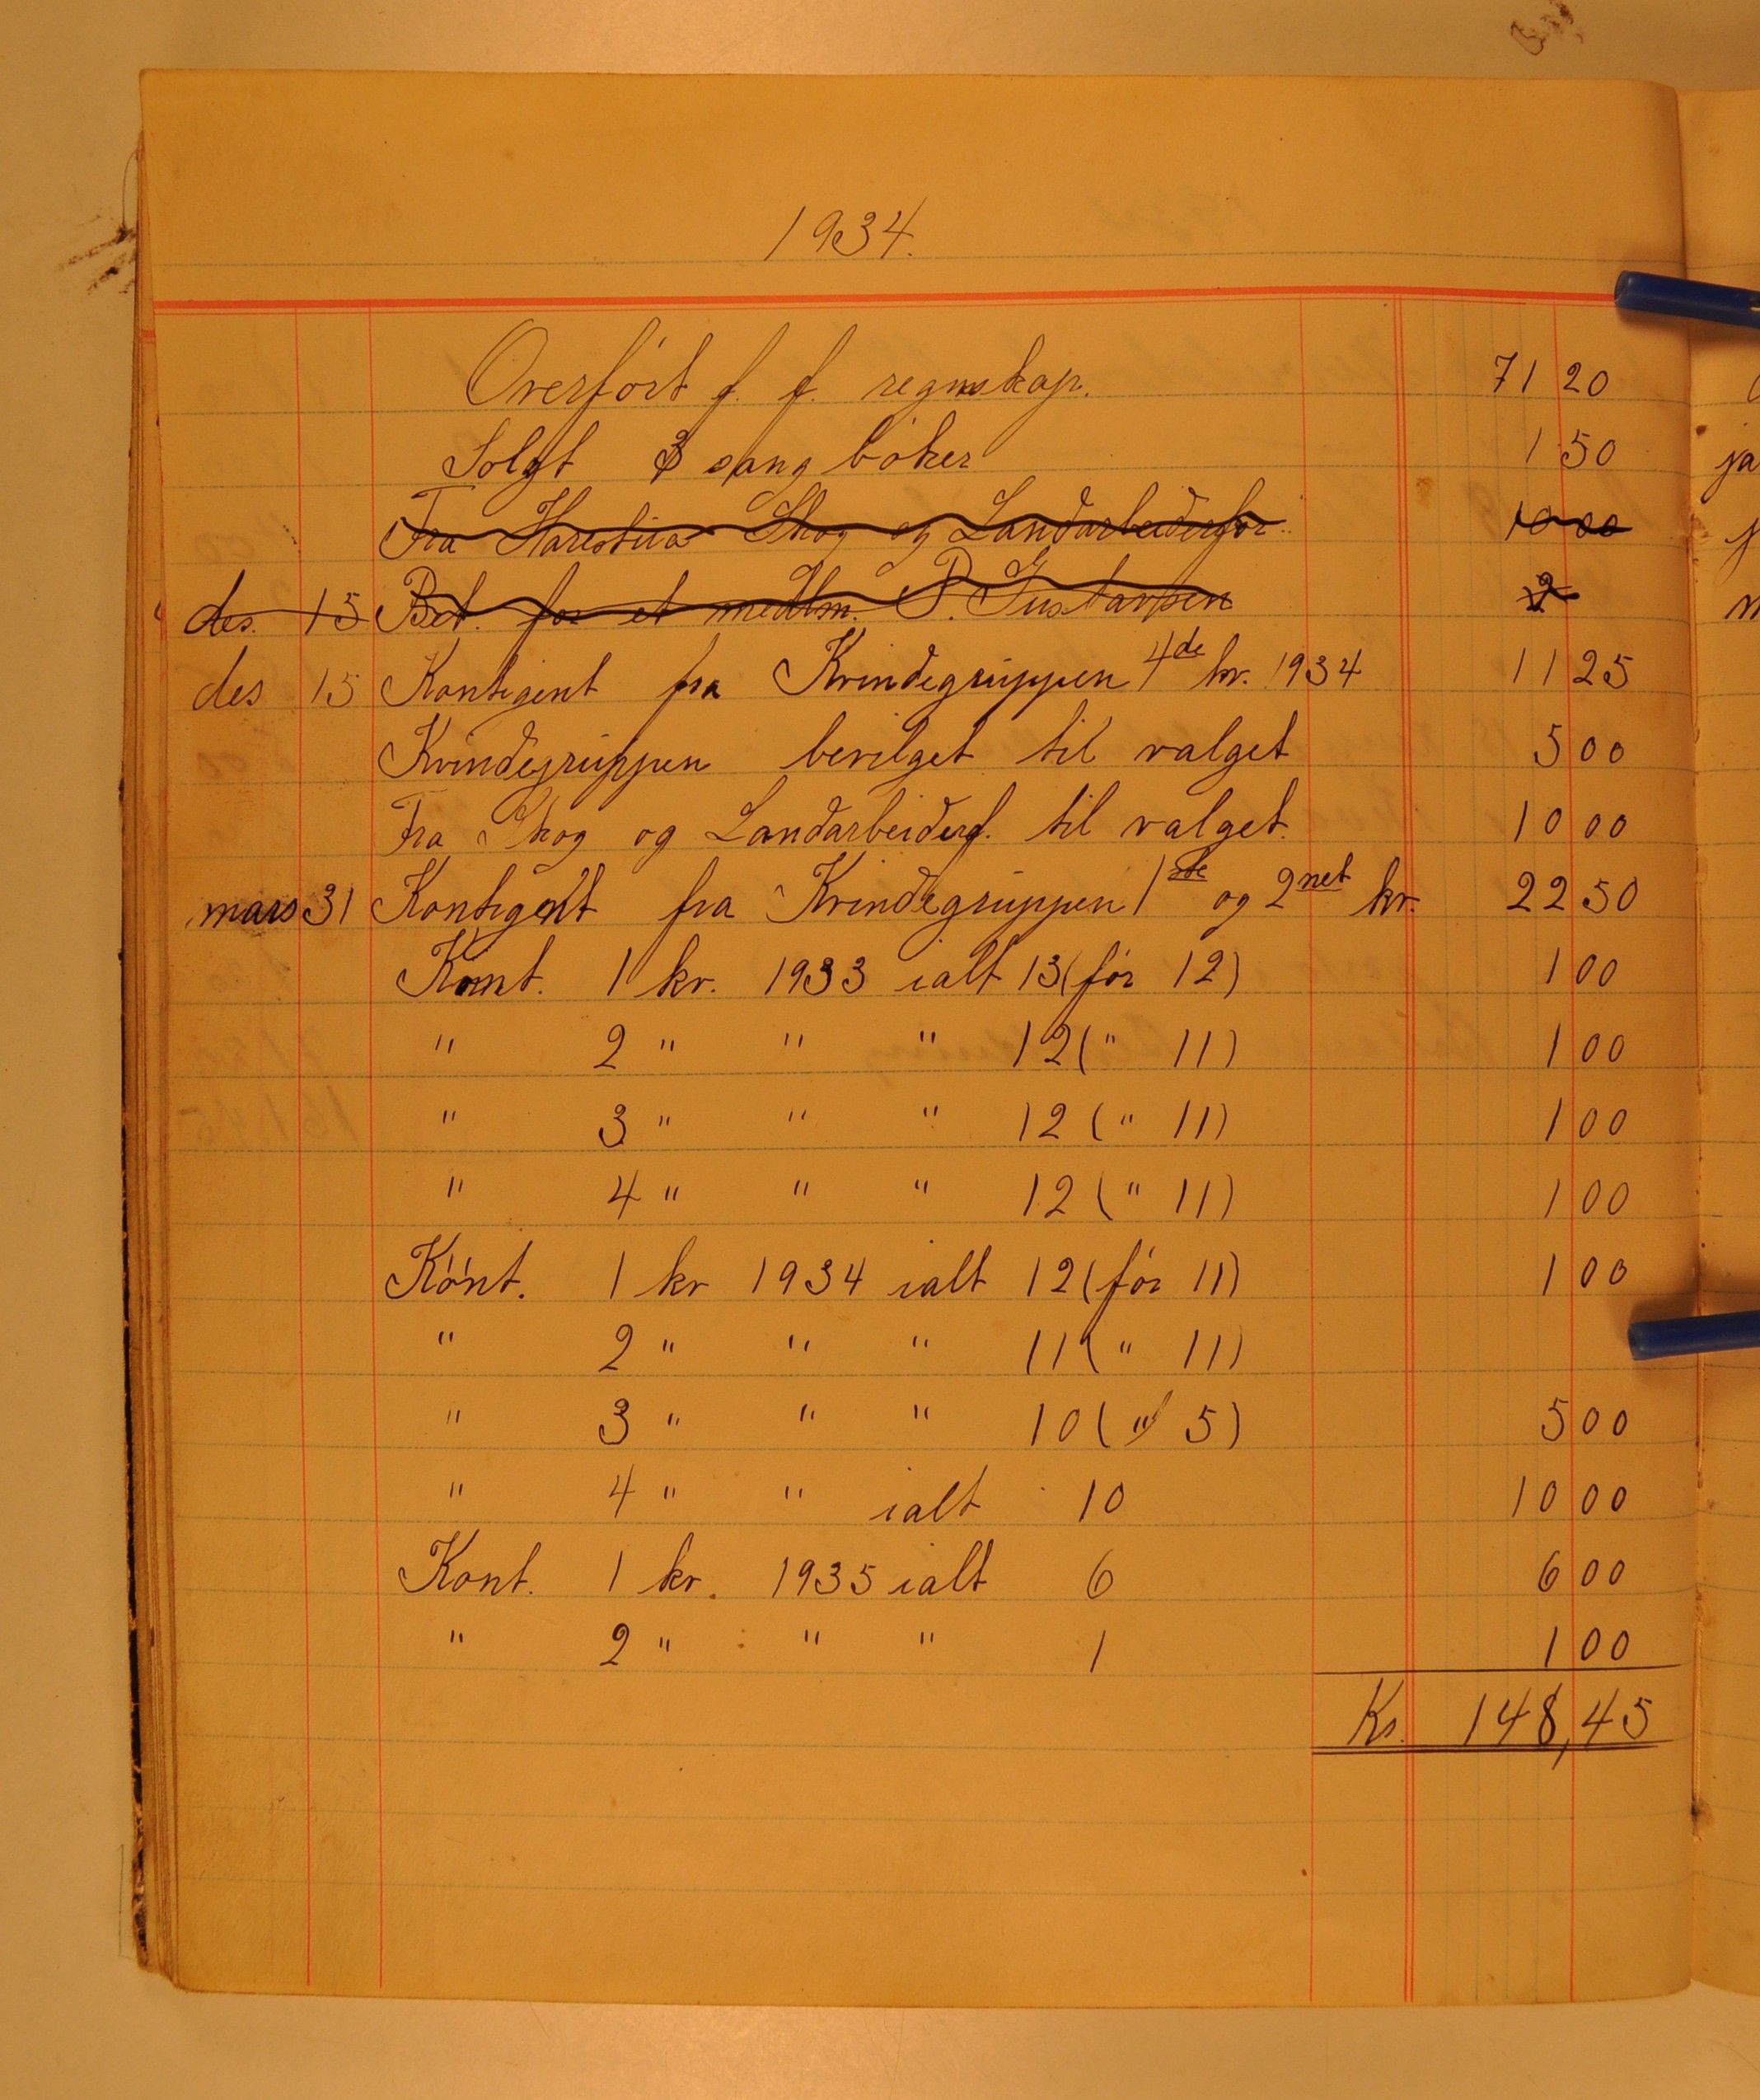 1934.
Overfört f. f. regnskap. 71 20
Solgt 3 sang böker 1 50
Fra Harestua Skog og Landarbeiderfor. 10 00
des. 15 Bet. for et medlm. P. Gustavsen 2
des 15 Kontigent fra Kvindegruppen 4de kv. 1934 11 25
Kvindegruppen bevilget til valget 5 00
Fra Skog og Landarbeiderf. til valget. 10 00
mars 31 Kontigent fra Kvindegruppen 1ste og 2net kv. 22 50
Kont. 1 kv. 1933 ialt 13 (för 12) 1 00
" 2 " " " 12 (" 11) 1 00
" 3 " " " 12 (" 11) 1 00
" 4 " " " 12 (" 11) 1 00
Kont. 1 kv 1934 ialt 12 (för 11) 1 00
" 2 " " " 11 (" 11)
" 3 " " " 10 (" 5) 5 00
" 4 " " ialt 10 10 00
Kont. 1 kv. 1935 ialt 6 6 00
" 2 " " " 1 1 00
Kr. 148,45